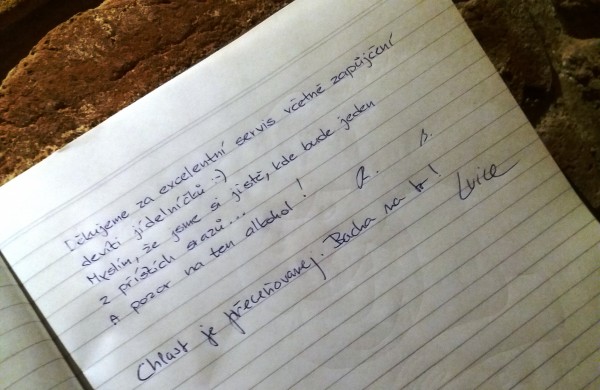 Děkujeme za excelentní servis včetně zapůjčení
devíti jídelníčků :-)
Myslím, že jsme si jistě, kde bude jeden
z příštích srazů...
A pozor na ten alkohol! R. B.
Chlast je přeceňovanej. Bacha na to! Lvice